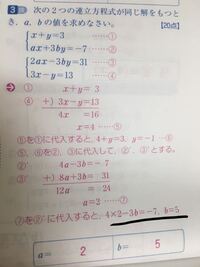 3 次の2つの連立方程式が同じ解をもつとき，a，bの値を求めなさい。 【20点】
x+y=3 ……①
ax+3by=-7 ……②
2ax-3by=31 ……③
3x-y=13 ……④
➔ ① x+y= 3
④ +) 3x-y=13
4x =16
x=4 ……⑤
⑤を①に代入すると，4+y=3，y=-1 ……⑥
⑤，⑥を②，③に代入して，②′，③′とする。
②′ 4a-3b=- 7
③′ +) 8a+3b= 31
12a = 24
a=2 ……⑦
⑦を②′に代入すると，4×2-3b=-7，b=5
a= 2 b= 5